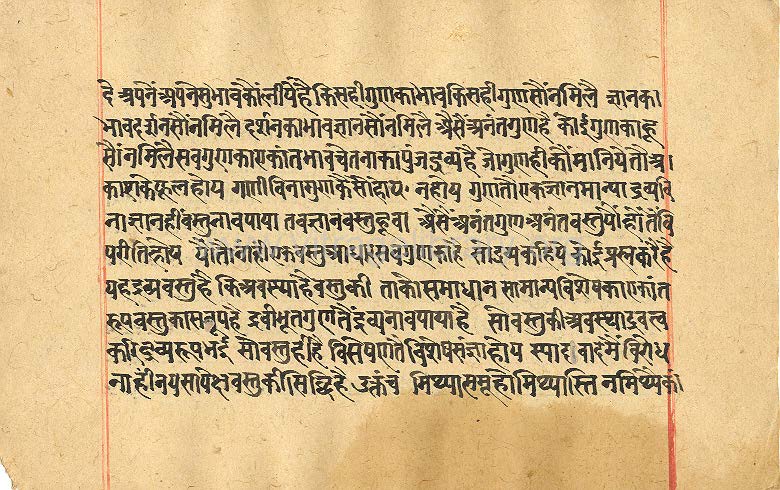 है अपनें अपनें सुभावकौं लीयें है किसही गुणका भाव किसही गुणसौं न मिलै ज्ञानका
भाव दर्शनसौं न मिलै दर्शनका भाव ज्ञानसौं न मिलै अैसैं अनंत गुण है कोई गुण काहू
सौं न मिलै सब गुणका एकांत भाव चेतनाका पुंज द्रव्य है जो गुणही कौं मानिये तो आ
काशके फूल होय गुणी विना गुण कैसें होय नहोय गुण तो एक ज्ञान मान्या द्रव्य वि
ना ज्ञानही वस्तु नाव पाया तब ज्ञान वस्तु हूवा अैसें अनंत गुण अनंत वस्तु यौं होते वि
परीति होय यौं तो नाही एक वस्तु आधार सब गुणका है सो द्रव्य कहिये कोई प्रस्न करै है
यह द्रव्य वस्तु है कि अवस्था है वस्तुकी ताको समाधान सामान्य विशेषका एकांत
रूप वस्तुका सरूप है द्रवीभूत गुणतैं द्रव्य नाव पाया है सो वस्तुकी अवस्था द्रवत्व
करि द्रव्य रूप भई सो वस्तु ही है विसेषणतै विशेष संज्ञा होय स्याद्वादमें विरोध
नाही नय सापेक्ष वस्तुकी सिद्धि है उक्तंच मिथ्यासमूहो मिथ्यास्ति न मिथ्यैकां